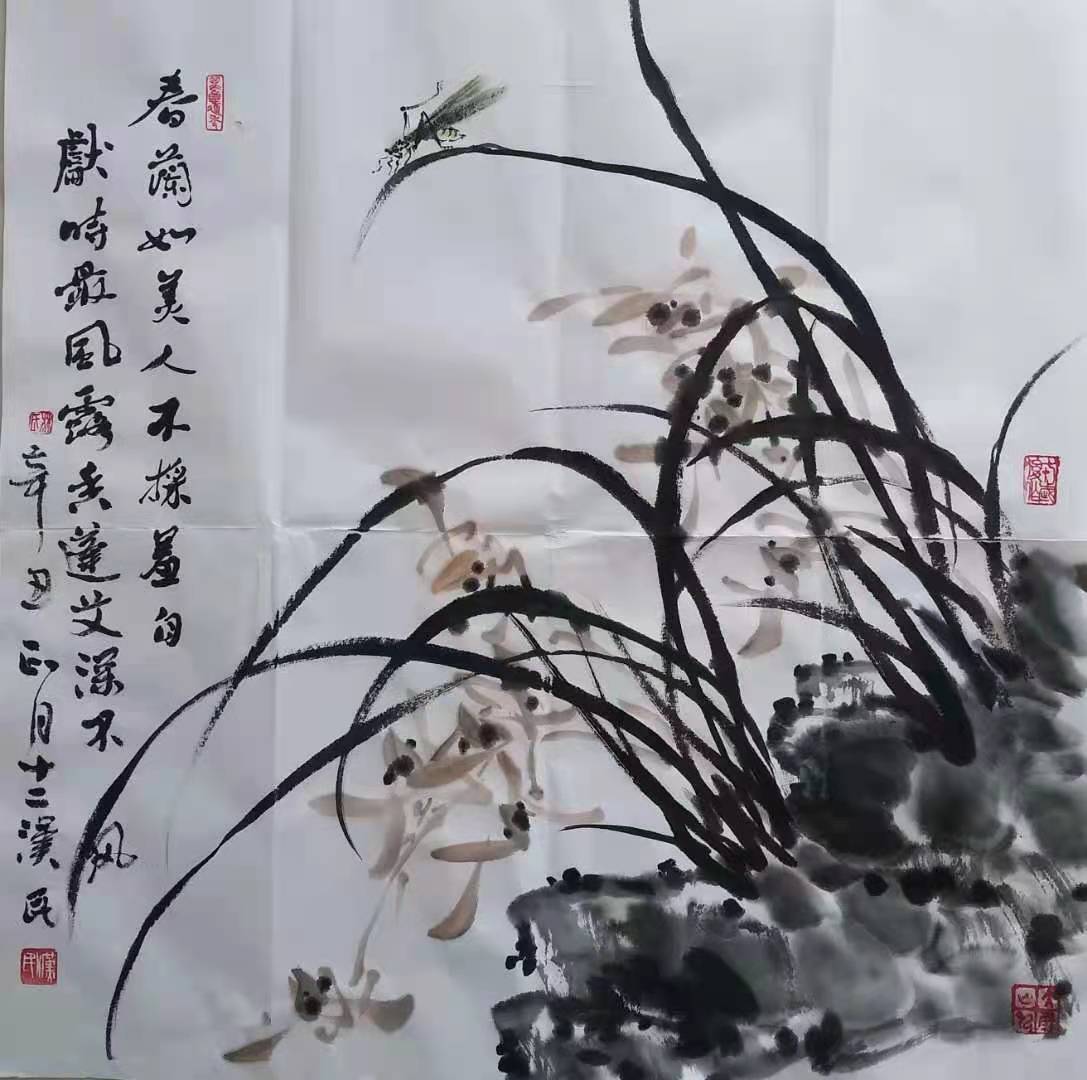 春蘭如美人不採羞自
獻時風露香蓬艾深不
辛丑正月十二漢民
漢民